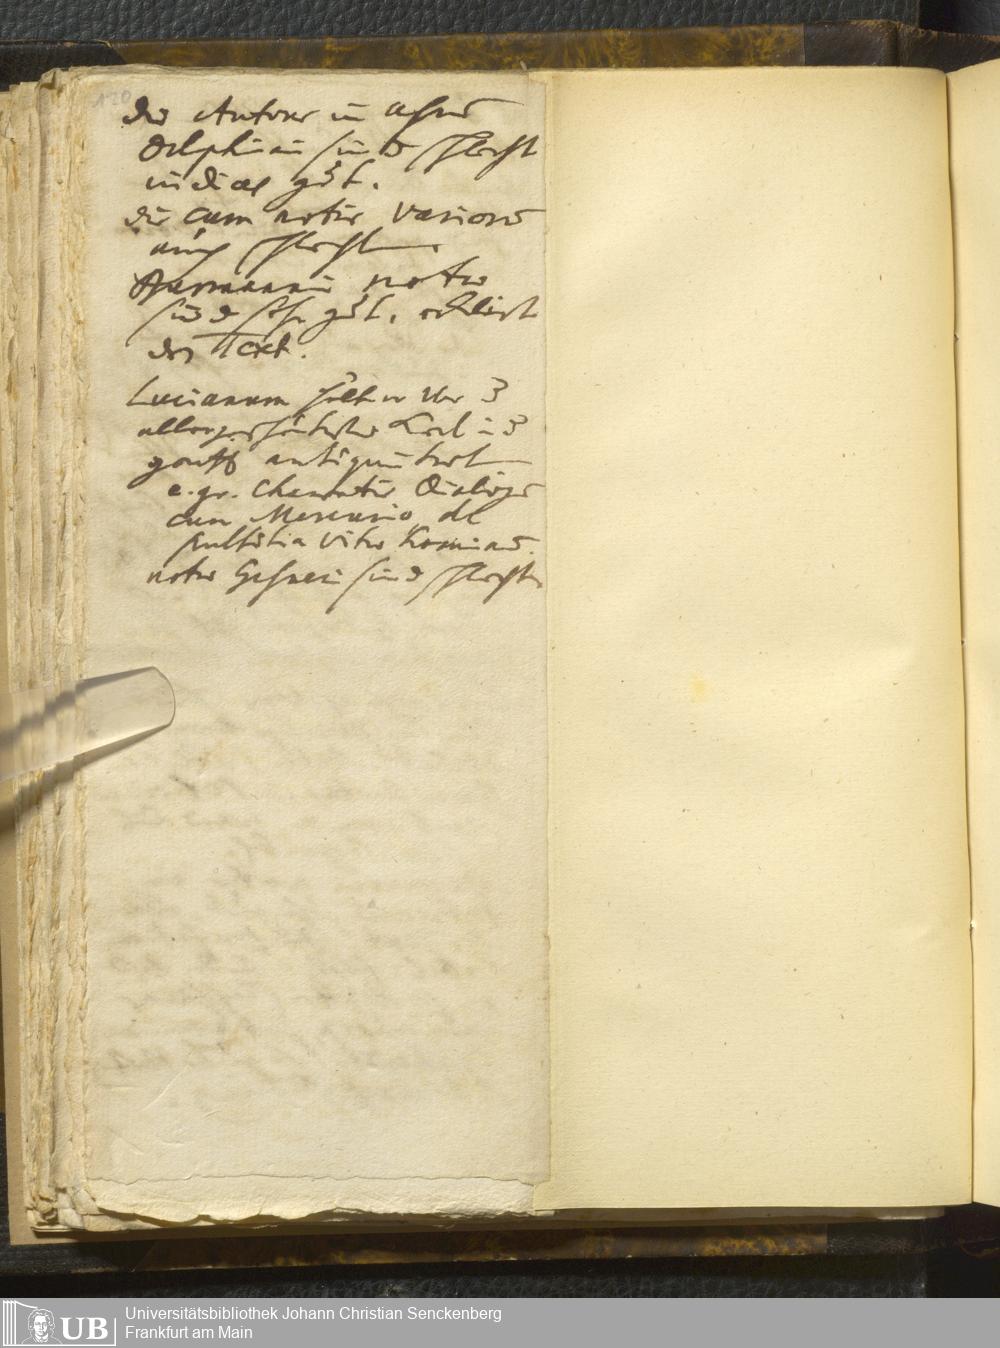 120
die Autores in usum
Delphini sind schlecht
indices gut.
die cum notis Variorum
auch schlecht
Burmanni notae
sind sehr gut, erklärt
den Text.
Lucianum hält er vor
Kerl
antiquität
e. gr. Charontis Dialogus
cum Mercurio de
stultitia vitae hominum.
notae Gesneri sind schlecht
UB
Universitätsbibliothek Johann Christian Senckenberg
Frankfurt am Main